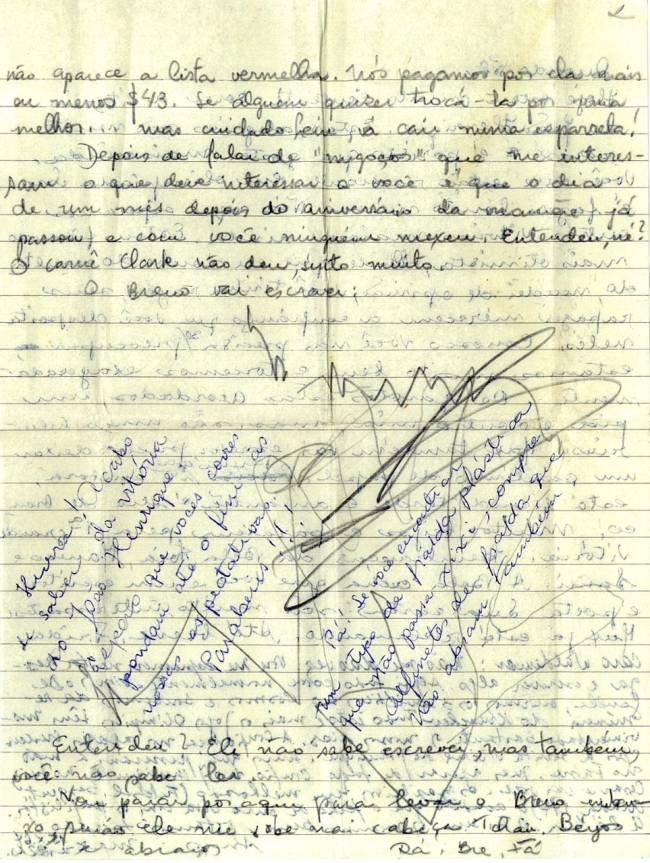 2
não aparece a lista vermelha. Nós pagamos por ela mais
ou menos $43. Se alguém quizer trocá-la por outra
melhor... mas cuidado feio, vá cair numa esparrela!
Depois de falar de "negoços" que me interes-
sam o que deve interessar a você é que o dia
de um mês depois do aniversário da mamãe já
passou e com você ninguém mexeu. Entendeu, né?
O carnê Clark não deu, sinto muito.
O Breno vai escrever:
Hurra! Acabo
de saber da vitória
do João Henrique!
Espero que vocês
pondam até o fim as
nossas espectativas.
Parabéns!!!
Dá! Se você encontrar
um tipo de fralda plástica
que não passa xixi, compre.
Alfinetes de fralda que
não abrjam também.
Entendeu? Ele não sabe escrever, mas também
você não sabe ler.
Vou parar por aqui para levar o Breno
senão ele me sobe na cabeça. Tchau, Beijos
e abraços Dá, Bre, Fá